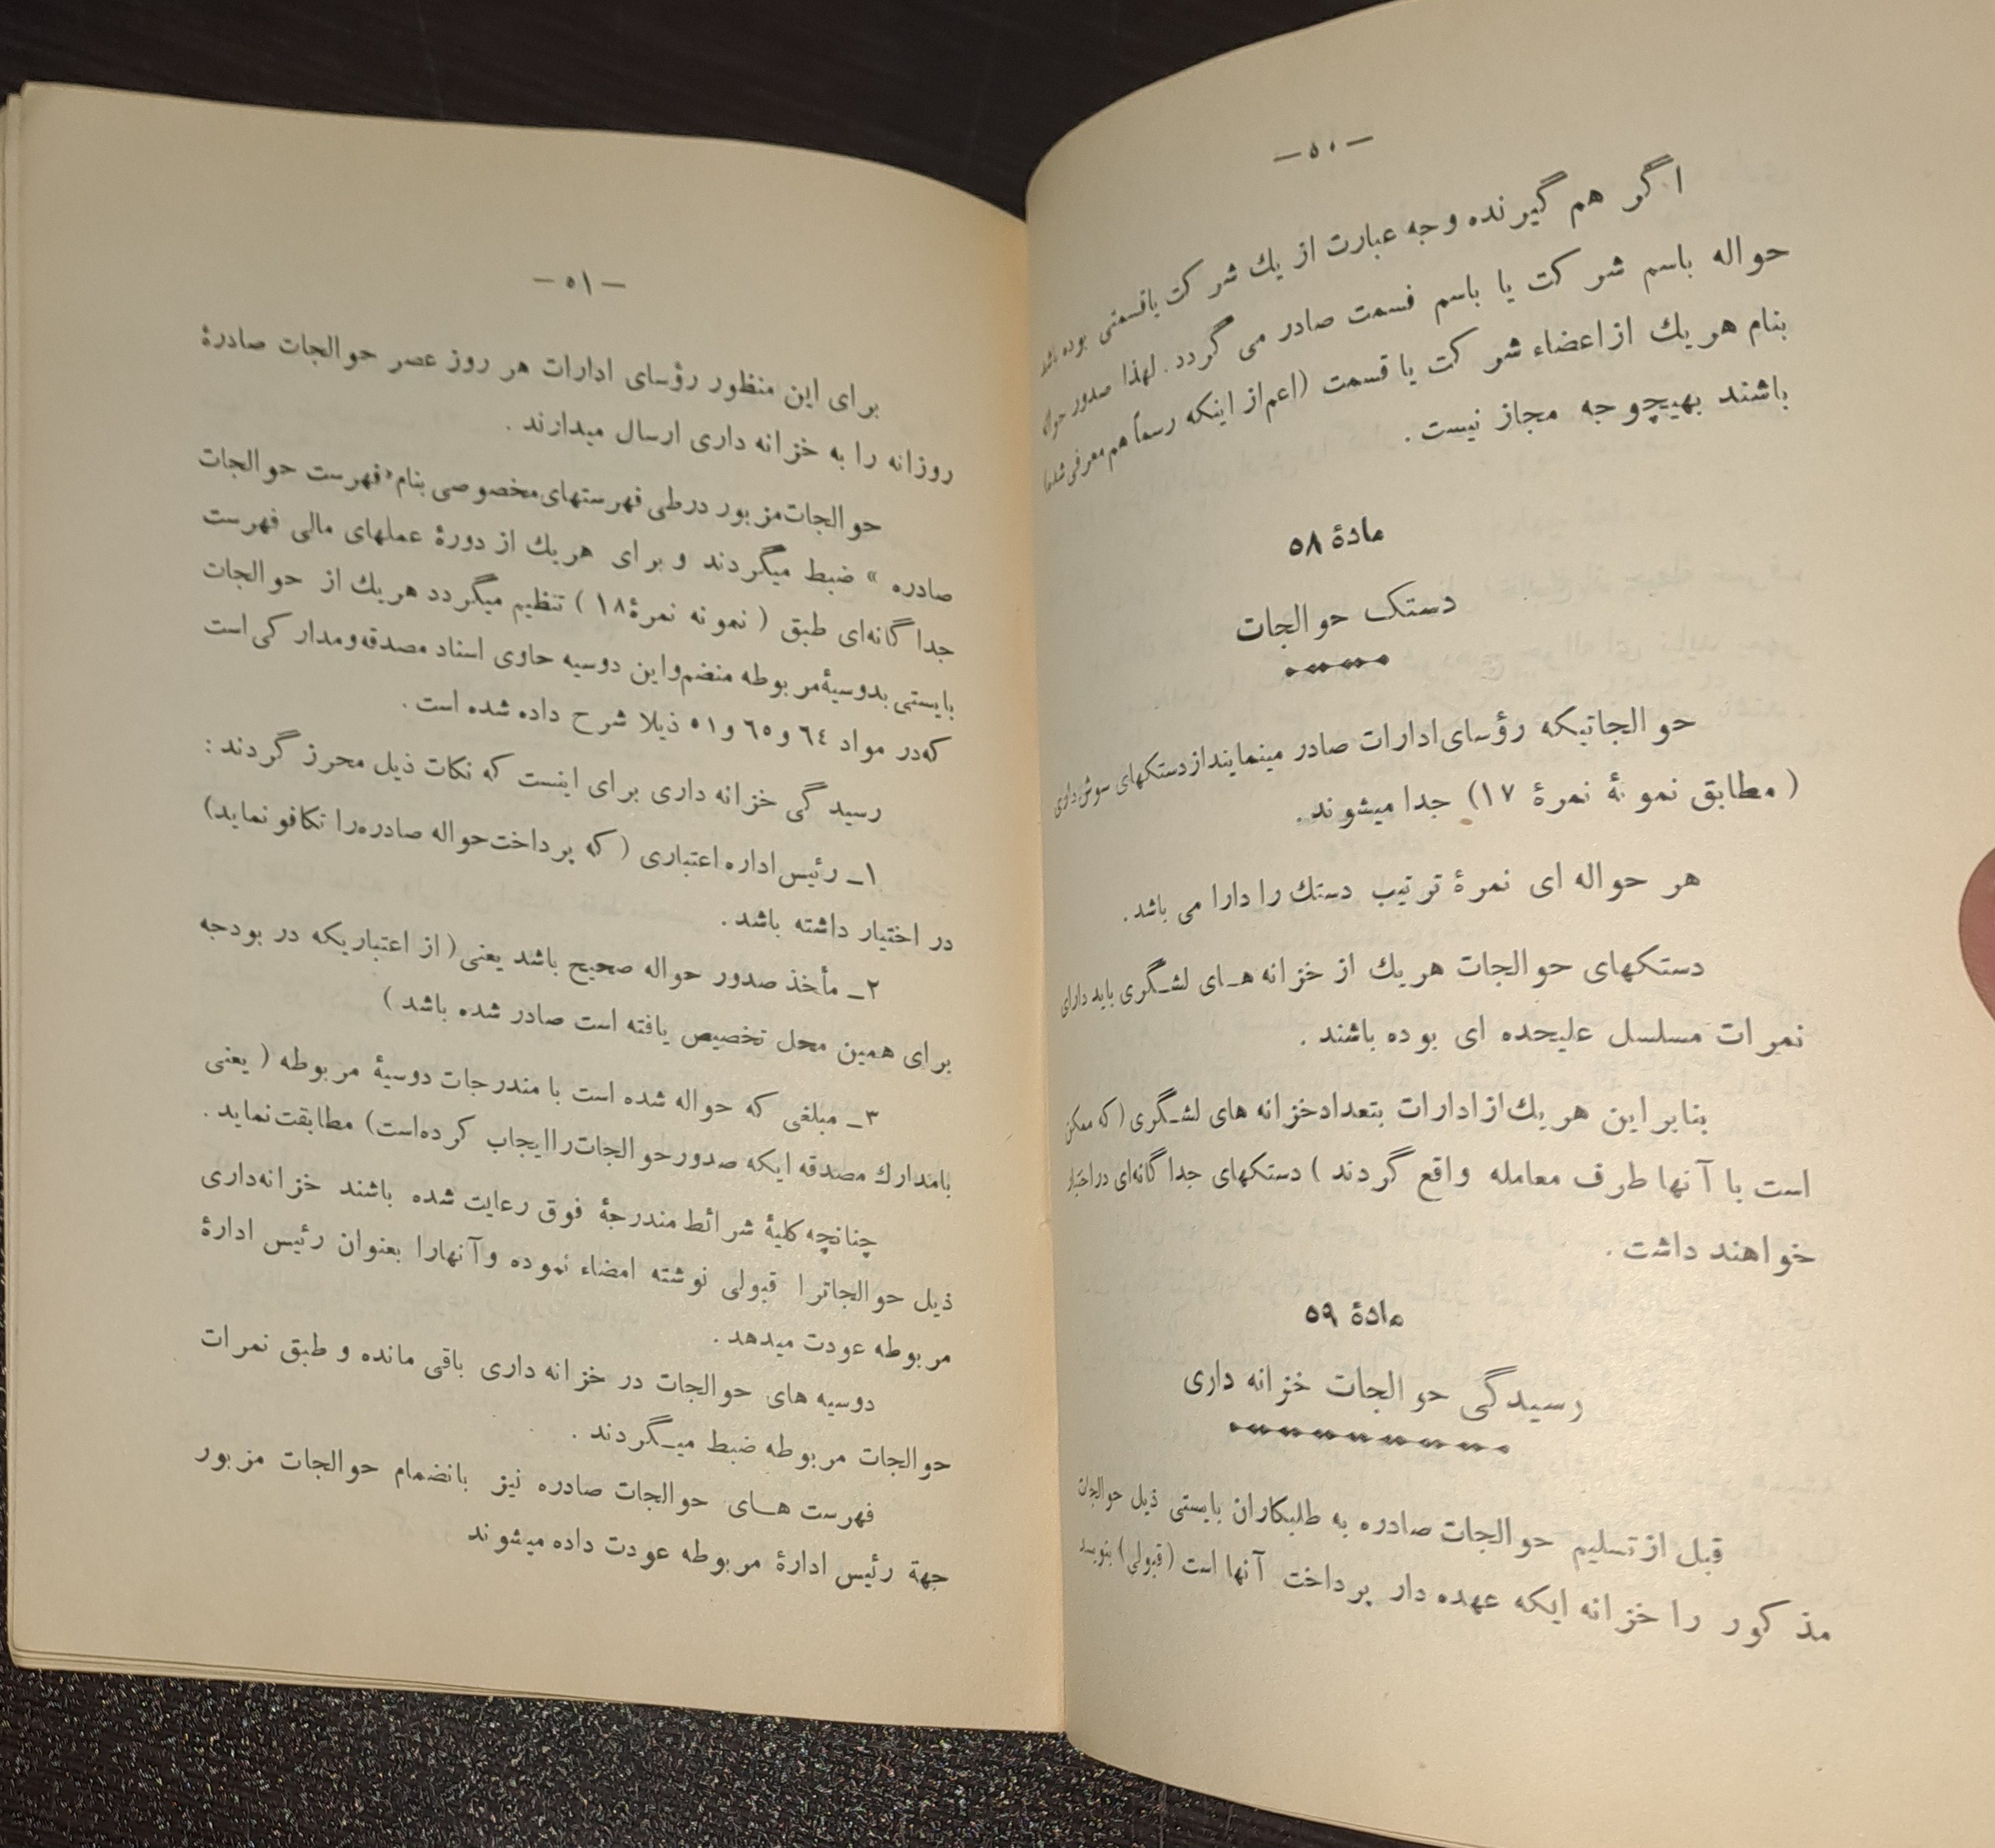 — ٥٠ —
اگر هم گیرنده وجه عبارت از یك شرکت یا قسمتی بوده باشد
حواله باسم شرکت یا باسم قسمت صادر می گردد. لهذا صدور حواله
بنام هریك از اعضاء شرکت یا قسمت (اعم از اینکه رسماً هم معرفی شده)
باشند بهیچوجه مجاز نیست .
مادۀ ٥٨
دستک حوالجات
حوالجاتیکه رؤسای ادارات صادر مینمایند از دستکهای سوش داری
( مطابق نمونۀ نمرۀ ١٧) جدا میشوند .
هر حواله ای نمرۀ ترتیب دستك را دارا می باشد .
دستکهای حوالجات هریك از خزانه هـای لشـگری باید دارای
نمرات مسلسل علیحده ای بوده باشند .
بنابراین هریك از ادارات بتعداد خزانه های لشـگری (که ممکن
است با آنها طرف معامله واقع گردند ) دستکهای جداگانه‌ای در اختیار
خواهند داشت .
مادۀ ٥٩
رسیدگی حوالجات خزانه داری
قبل از تسلیم حوالجات صادره به طلبکاران بایستی ذیل حوالجات
مذکور را خزانه ایکه عهده دار پرداخت آنها است (قبولی) بنویسد
— ٥١ —
برای این منظور رؤسای ادارات هر روز عصر حوالجات صادرۀ
روزانه را به خزانه داری ارسال میدارند .
حوالجات مزبور درطی فهرستهای مخصوصی بنام «فهرست حوالجات
صادره » ضبط میگردند و برای هریك از دورۀ عملهای مالی فهرست
جداگانه‌ای طبق ( نمونه نمرۀ ١٨ ) تنظیم میگردد هریك از حوالجات
بایستی بدوسیۀ مربوطه منضم واین دوسیه حاوی اسناد مصدقه ومدارکی است
که در مواد ٦٤ و ٦٥ و ٥١ ذیلا شرح داده شده است .
رسیدگی خزانه داری برای اینست که نکات ذیل محرز گردند :
١ـ رئیس اداره اعتباری ( که پرداخت حواله صادره را تکافو نماید)
در اختیار داشته باشد .
٢ـ مأخذ صدور حواله صحیح باشد یعنی ( از اعتباریکه در بودجه
برای همین محل تخصیص یافته است صادر شده باشد )
٣ـ مبلغی که حواله شده است با مندرجات دوسیۀ مربوطه ( یعنی
بامدارك مصدقه ایکه صدور حوالجات را ایجاب کرده است) مطابقت نماید .
چنانچه کلیۀ شرائط مندرجۀ فوق رعایت شده باشند خزانه داری
ذیل حوالجاترا قبولی نوشته امضاء نموده وآنهارا بعنوان رئیس ادارۀ
مربوطه عودت میدهد .
دوسیه های حوالجات در خزانه داری باقی مانده و طبق نمرات
حوالجات مربوطه ضبط میـگردند .
فهرست هـای حوالجات صادره نیز بانضمام حوالجات مزبور
جهة رئیس ادارۀ مربوطه عودت داده میشوند